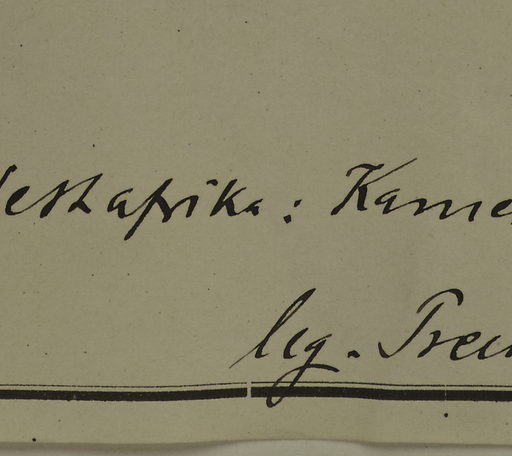 estafrika: Kame
leg. Preu